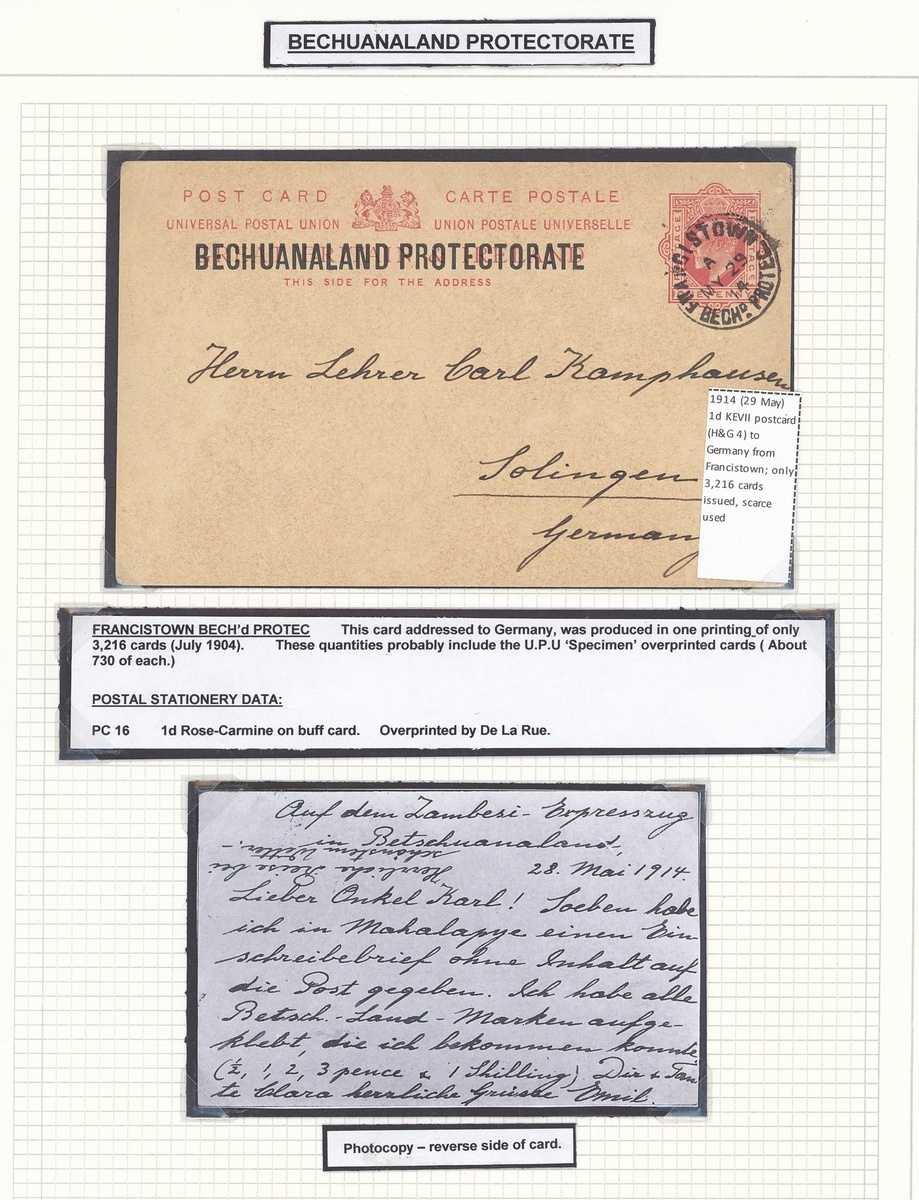 BECHUANALAND PROTECTORATE
POST CARD CARTE POSTALE
UNIVERSAL POSTAL UNION UNION POSTALE UNIVERSELLE
BECHUANALAND PROTECTORATE
THIS SIDE FOR THE ADDRESS
FRANCISTOWN BECHD. PROTEC
A
MY 29
14
Herrn Lehrer Carl Kamphausen
Solingen
Germany
1914 (29 May)
1d KEVII postcard
(H&G 4) to
Germany from
Francistown; only
3,216 cards
issued, scarce
used
FRANCISTOWN BECH'd PROTEC This card addressed to Germany, was produced in one printing of only
3,216 cards (July 1904). These quantities probably include the U.P.U 'Specimen' overprinted cards ( About
730 of each.)
POSTAL STATIONERY DATA:
PC 16 1d Rose-Carmine on buff card. Overprinted by De La Rue.
Auf dem Zambesi-Expresszug
in Betschuanaland,
28. Mai 1914.
Herrliche Reise bei
schönstem Wetter.-
Lieber Onkel Karl! Soeben habe
ich in Mahalapye einen Ein
schreibebrief ohne Inhalt auf
die Post gegeben. Ich habe alle
Betsch.-Land-Marken aufge-
klebt, die ich bekommen konnte
(½, 1, 2, 3 pence & 1 Shilling) Dir & Tan
te Clara herzliche Grüsse Emil.
Photocopy – reverse side of card.